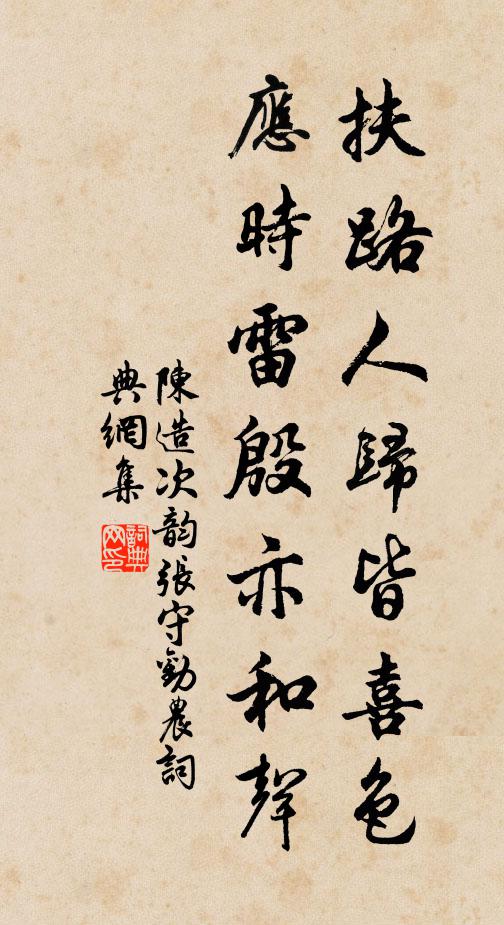 扶路人歸皆喜色
應時雷殷亦和聲
陳造次韵張守勸農詞
典網集
詞典網印